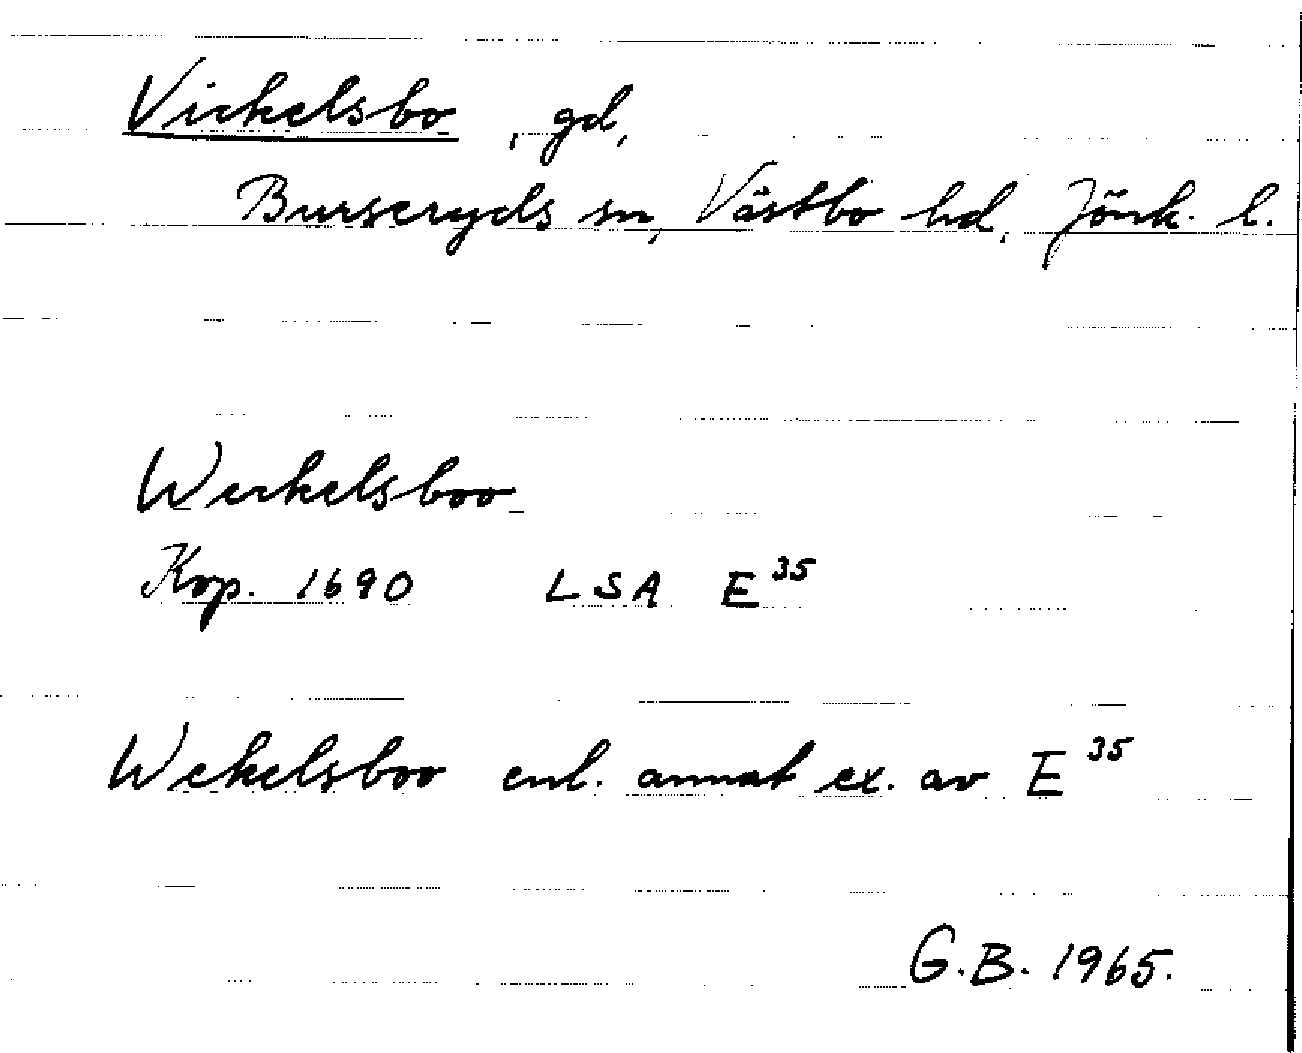 Vickelsbo, gd,
Burseryds sn, Västbo hd, Jönk. l.
Weckelsboo
Kop. 1690 LSA E³⁵
Wekelsboo enl. annat ex. av E³⁵
G.B. 1965.